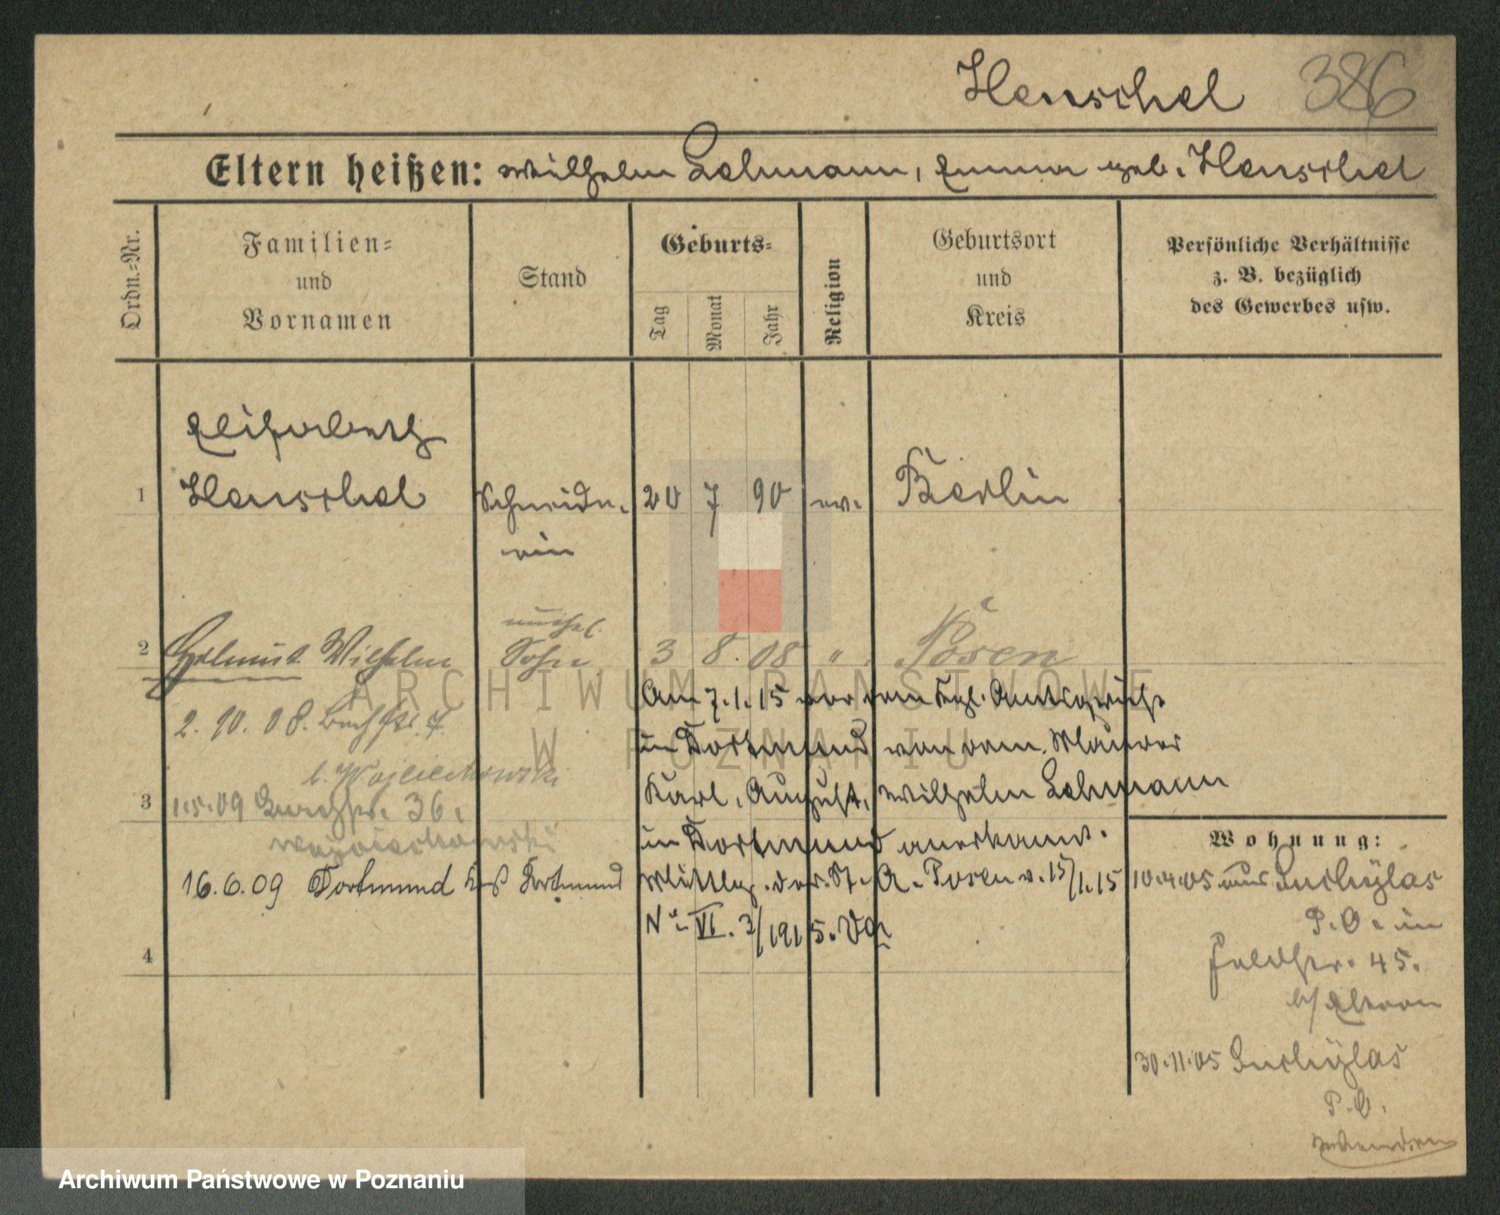 Henschel 386
Eltern heißen: Wilhelm Lehmann, Emma geb. Henschel
Ordn.-Nr.
Familien-
und
Vornamen
Stand
Geburts-
Tag
Monat
Jahr
Religion
Geburtsort
und
Kreis
Persönliche Verhältnisse
z. B. bezüglich
des Gewerbes usw.
Elisabeth
1 Henschel Schneide- 20 7 90 ev. Berlin
rin
unehel.
2 Helmut Wilhelm Sohn 3 8. 08 " Posen
2. 10. 08.
b. Wojciechowski
3 1.5.09 36.
Wojciechowski
16.6.09 Dortmund Krs Dortmund
4
Am 7.1.15 vor dem Kgl. Amtsgericht
in Dortmund von dem Maurer
Karl, August, Wilhelm Lehmann
in Dortmund anerkannt.
Mittlg. der St. A. Posen v. 15/1.15
No VI. 3/1915.
Wohnung:
10.4.05 aus
P. O. in
Feldstr. 45.
b/ Eltern
30.11.05
P. O.
ARCHIWUM PAŃSTWOWE
W POZNANIU
Archiwum Państwowe w Poznaniu